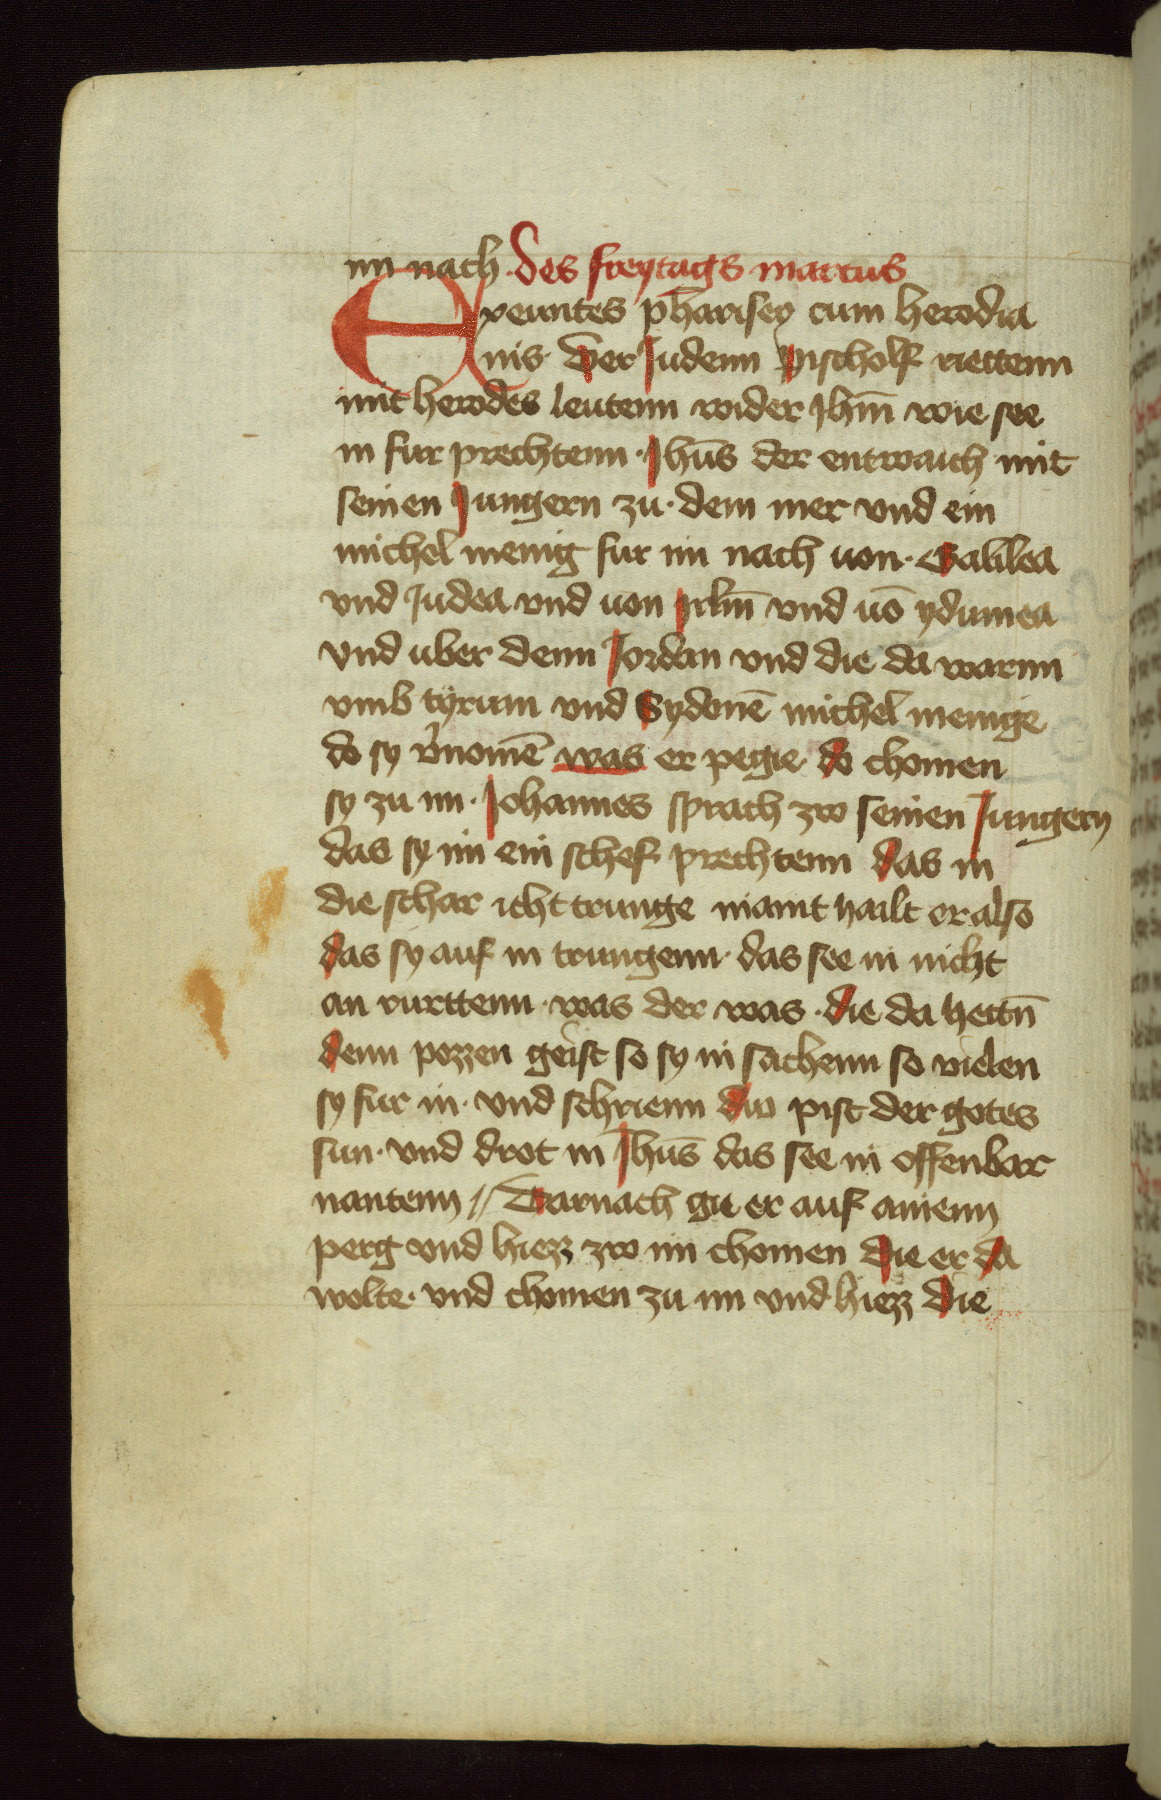 im nach. Des freytags marcus
Exeuntes pharisey cum herodia
nis. Der Judenn pischolf riettenn
mit herodes leutenn wider Jhm̄ wie see
in fur prechtenn. Jhūs der entwaich mit
seinen Jungern zu. dem mer vnd ein
michel menig fur im nach uon. Galilea
vnd Judea vnd uon Jrlm̄ vnd uō ydumea
vnd uber denn Jordan vnd die da warnn
vmb tyrum vnd Sydonē michel menige
do sy v̄nomē was er pegie do chomen
sy zu im. Johannes sprach zw seinen Jungern
das sy im ein schef prechtenn das in
die schar icht trunge niamt hailt er also
das sy auf in trungenn. das see in nicht
an rurttenn. was der was. die da hettn̄
denn pozzen geist so sy in sachenn so vielen
sy fur in. vnd schrienn diw pist der gotes
sun. vnd drot in Jhūs das see in offenbar
nantenn // Darnach gie er auf ainenn
perg vnd hiezz zw im chomen die er da
wolte. vnd chomen zu im vnd hiezz die